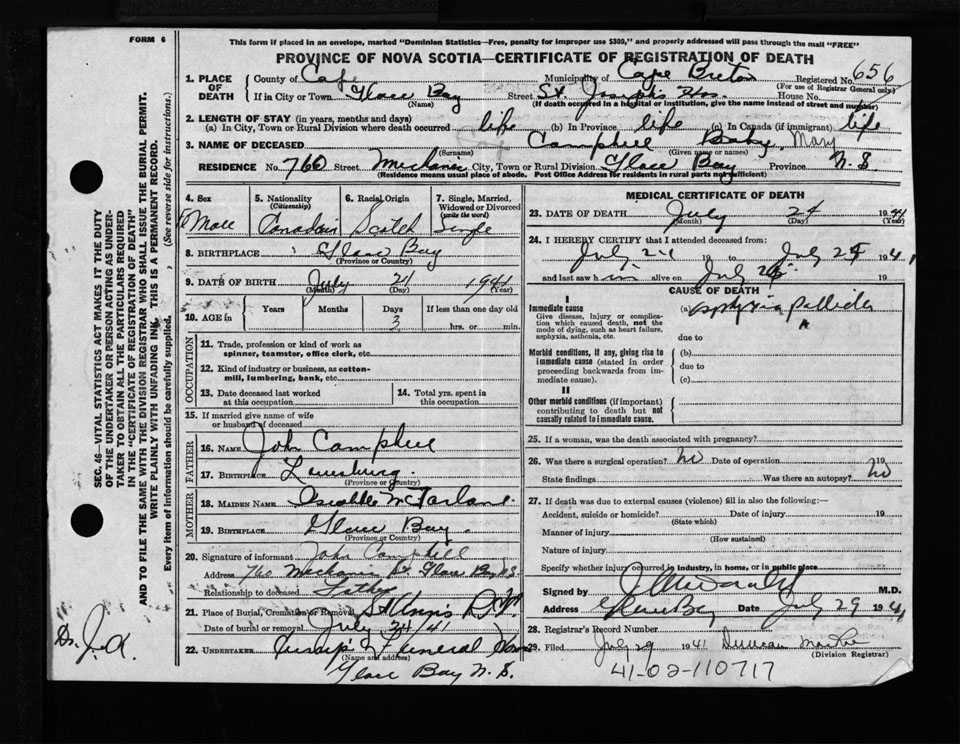 FORM 6
This form if placed in an envelope, marked "Dominion Statistics—Free, penalty for improper use $300," and properly addressed will pass through the mail "FREE"
PROVINCE OF NOVA SCOTIA—CERTIFICATE OF REGISTRATION OF DEATH
SEC. 46—VITAL STATISTICS ACT MAKES IT THE DUTY
OF THE UNDERTAKER OR PERSON ACTING AS UNDER-
TAKER TO OBTAIN ALL THE PARTICULARS REQUIRED
IN THE "CERTIFICATE OF REGISTRATION OF DEATH"
AND TO FILE THE SAME WITH THE DIVISION REGISTRAR WHO SHALL ISSUE THE BURIAL PERMIT.
WRITE PLAINLY WITH UNFADING INK. THIS IS A PERMANENT RECORD.
Every item of information should be carefully supplied. (See reverse side for instructions.)
1. PLACE OF DEATH County of Cape Municipality of Cape Breton Registered No. 656
(For use of Registrar General only)
If in City or Town Glace Bay Street St. Joseph's Hos. House No.
(Name) (If death occurred in a hospital or institution, give the name instead of street and number)
2. LENGTH OF STAY (in years, months and days)
(a) In City, Town or Rural Division where death occurred life (b) In Province life (c) In Canada (if immigrant) life
3. NAME OF DECEASED Campbell Baby, Mary
(Surname) (Given name or names)
RESIDENCE No. 760 Street Mechanic City, Town or Rural Division Glace Bay Province N.S.
(Residence means usual place of abode. Post Office Address for residents in rural parts not sufficient)
4. Sex FMale
5. Nationality (Citizenship) Canadian
6. Racial Origin Scotch
7. Single, Married, Widowed or Divorced (write the word) Single
8. BIRTHPLACE Glace Bay
(Province or Country)
9. DATE OF BIRTH July 21 1941
(Month) (Day) (Year)
10. AGE in Years Months Days 3 If less than one day old
hrs. or min.
OCCUPATION
11. Trade, profession or kind of work as
spinner, teamster, office clerk, etc
12. Kind of industry or business, as cotton-
mill, lumbering, bank, etc.
13. Date deceased last worked
at this occupation
14. Total yrs. spent in
this occupation
15. If married give name of wife
or husband of deceased
FATHER
16. NAME John Campbell
17. BIRTHPLACE Louisburg
(Province or Country)
MOTHER
18. MAIDEN NAME Isabelle McFarlane
19. BIRTHPLACE Glace Bay
(Province or Country)
20. Signature of informant John Campbell
Address 760 Mechanic St Glace Bay NS
Relationship to deceased Father
21. Place of Burial, Cremation or Removal St Anns
Date of burial or removal July 24/41
22. UNDERTAKER Funeral Home
(Name and address)
Glace Bay N.S.
MEDICAL CERTIFICATE OF DEATH
23. DATE OF DEATH July 24 1941
(Month) (Day) (Year)
24. I HEREBY CERTIFY that I attended deceased from:
July 21 19 to July 24 1941
and last saw h alive on July 24 19
CAUSE OF DEATH
I
Immediate cause (a) asphyxia pallida
Give disease, injury or complica-
tion which caused death, not the
mode of dying, such as heart failure,
asphyxia, asthenia, etc.
due to
Morbid conditions, if any, giving rise to
immediate cause (stated in order
proceeding backwards from im-
mediate cause).
(b)
due to
(c)
II
Other morbid conditions (if important)
contributing to death but not
causally related to immediate cause.
25. If a woman, was the death associated with pregnancy?
26. Was there a surgical operation? no Date of operation 19
State findings Was there an autopsy? no
27. If death was due to external causes (violence) fill in also the following:—
Accident, suicide or homicide? Date of injury 19
(State which)
Manner of injury
(How sustained)
Nature of injury
Specify whether injury occurred in industry, in home, or in public place
Signed by McDonald M.D.
Address Glace Bay Date July 29 1941
28. Registrar's Record Number
29. Filed July 29 1941 Duncan
(Division Registrar)
41-02-110717